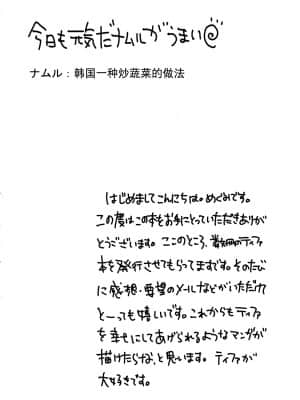 今日も元気だナムルがうまい@
ナムル：韩国一种炒蔬菜的做法
はじめましてこんにちは。めぐみです。
この度はこの本をお手にとっていただきありが
とうございます。ここのところ、数冊のティファ
本を発行させてもらってますです。そのたび
に感想・要望のメールなどがいただけ
と～っても嬉しいです。これからもティファ
を幸せにしてあげられるようなマンガが
描けたらな、と思います。ティファが
大好きです。